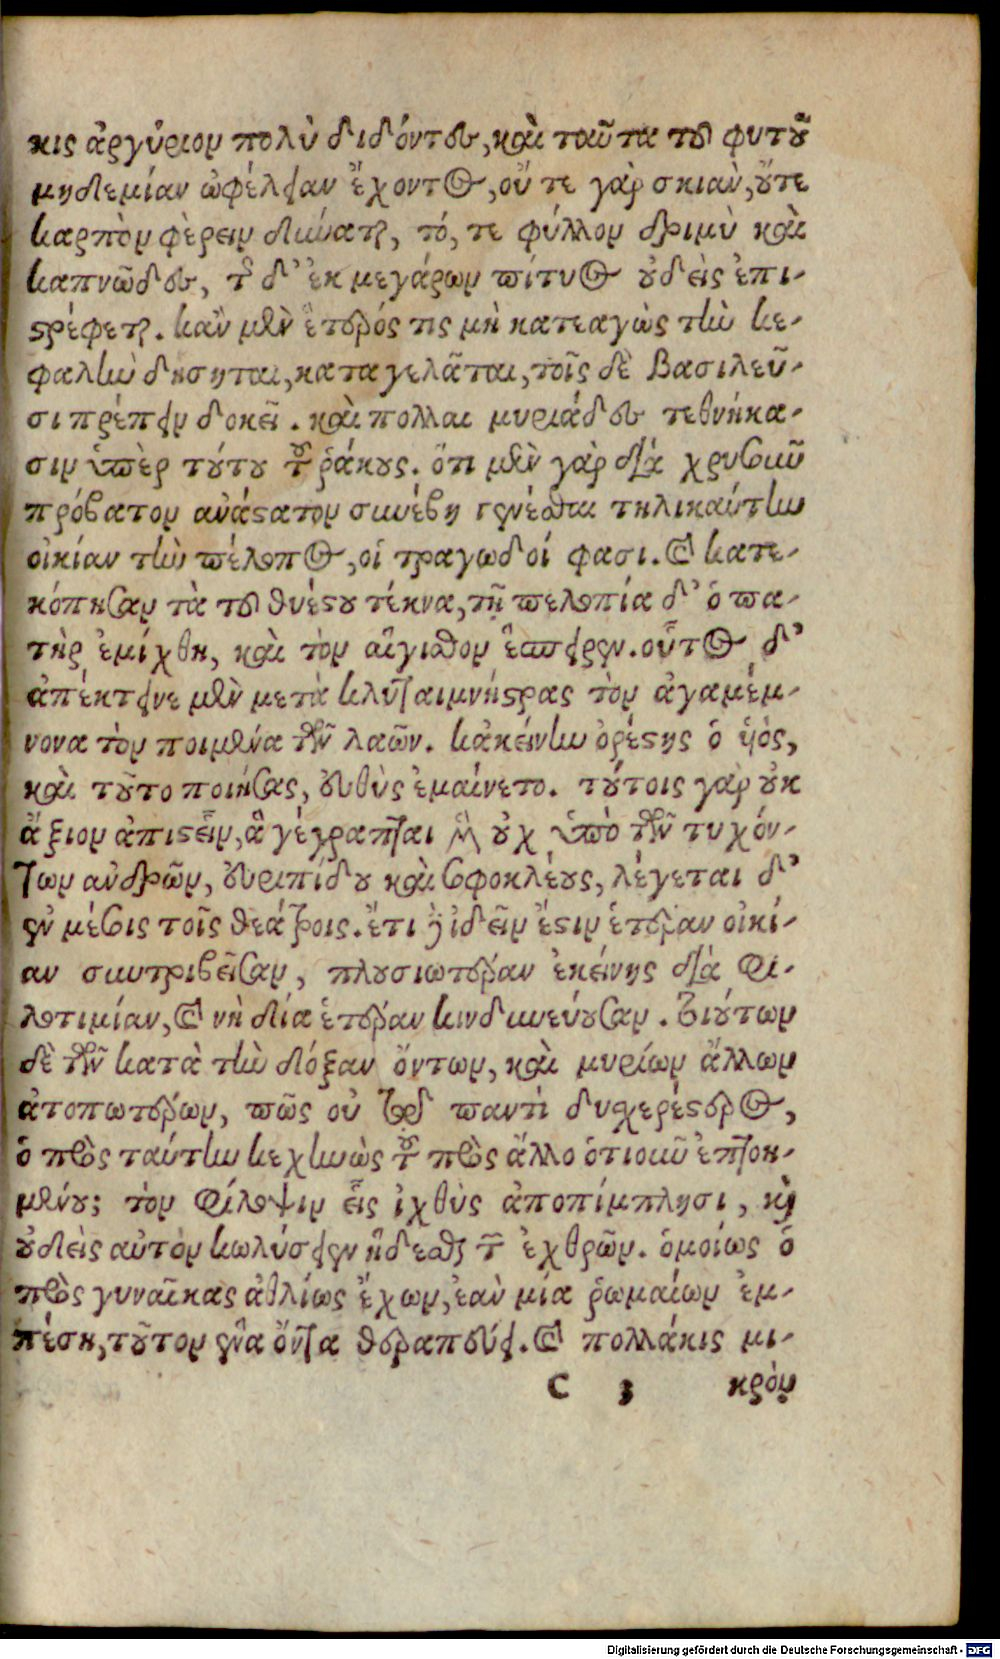 κις ἀργύριον πολὺ διδόντες, καὶ ταῦτα τοῦ φυτοῦ
μηδεμίαν ὠφέλειαν ἔχοντος, οὔ τε γὰρ σκιὰν, οὔτε
καρπὸν φὲρειν δύναται, τό, τε φύλλον δριμὺ καὶ
καπνῶδες, τῆς δ’ ἐκ μεγάρων πίτυος οὐδεὶς ἐπι-
στρέφεται. κᾂν μὲν ἕτερός τις μὴ κατεαγὼς τὴν κε-
φαλὴν δήσηται, καταγελᾶται, τοῖς δὲ βασιλεῦ-
σι πρέπειν δοκεῖ. καὶ πολλαι μυριάδες τεθνήκα-
σιν ὑπὲρ τούτου τοῦ ῥάκους. ὅτι μὲν γὰρ διὰ χρυσοῦν
πρόβατον ανάστατον συνέβη γενέσθαι τηλικαύτην
οἰκίαν τὴν πέλοπος, οἱ τραγωδοί φασι. καὶ κατε-
κόπησαν τὰ τοῦ θυέστου τέκνα, τῇ πελοπία δ’ ὁ πα-
τὴρ ἐμίχθη, καὶ τὸν αἴγισθον ἔσπειρεν. οὗτος δ’
ἀπέκτεινε μὲν μετὰ κλυταιμνήστρας τὸν ἀγαμέμ-
νονα τὸν ποιμένα τῶν λαῶν. κἀκείνην ὀρέστης ὁ ὑιὸς,
καὶ τοῦτο ποιήσας, εὐθὺς ἐμαίνετο. τούτοις γὰρ οὐκ
ἄξιον ἀπιστεῖν, ἃ γέγραπται μὲν οὐχ ὑπὸ τῶν τυχόν-
των ανδρῶν, εὐριπίδου καὶ σοφοκλέους, λέγεται δ’
ἐν μέσοις τοῖς θεάτροις. ἔτι γε ἰδεῖν ἔστιν ἑτέραν οἰκί-
αν συντριβεῖσαν, πλουσιωτέραν ἐκείνης διὰ φι-
λοτιμίαν, καὶ νὴ δία ἑτέραν κινδυνεύουσαν. τοιούτων
δὲ τῶν κατὰ τὴν δόξαν ὄντων, καὶ μυρίων ἄλλων
ἀτοπωτέρων, πῶς οὐ τῷ παντὶ δυσχερέστερος,
ὁ πρὸς ταύτην κεχηνὼς τοῦ πρὸς ἄλλο ὁτιοῦν ἐπτοη-
μένου; τὸν φίλοψιν εἷς ἰχθὺς ἀποπίμπλησι, καὶ
οὐδεὶς αὐτὸν κωλύσειεν ἥδεσθαι τῶν ἐχθρῶν. ὁμοίως ὁ
πρὸς γυναῖκας ἀθλίως ἔχων, ἐὰν μία ῥωμαίων ἐμ-
πέσῃ, τοῦτον ἕνα ὄντα θεραπεύει. καὶ πολλάκις μι-
C 3 κρὸν
Digitalisierung gefördert durch die Deutsche Forschungsgemeinschaft - DFG